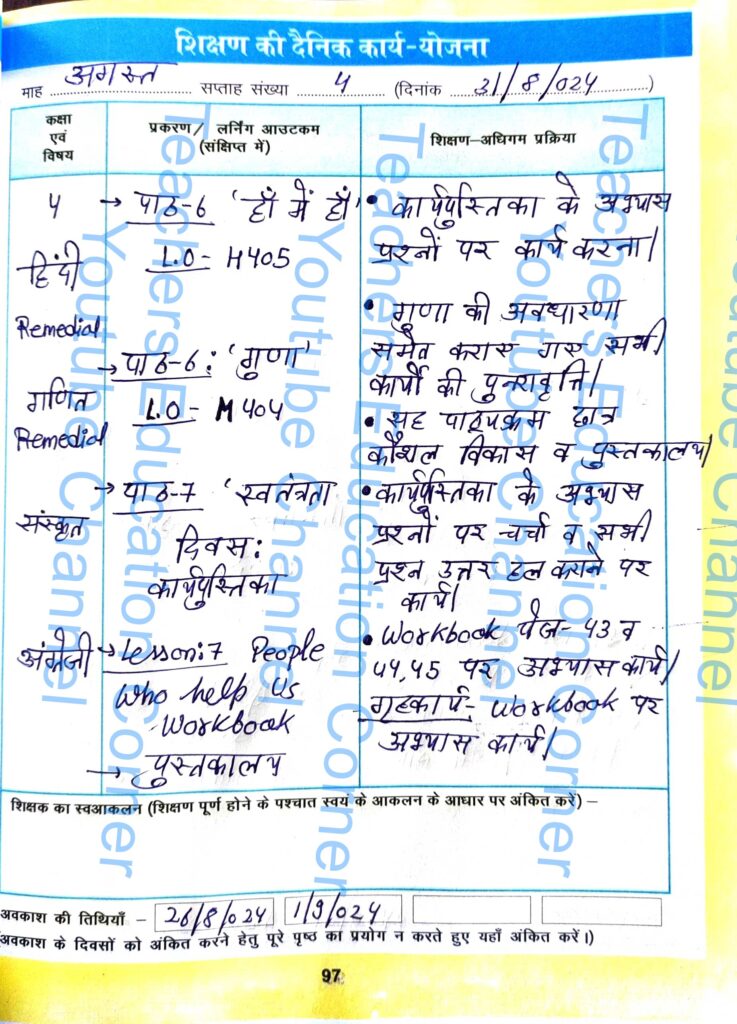 शिक्षण की दैनिक कार्य-योजना
माह अगस्त सप्ताह संख्या 4 (दिनांक 31/8/024)
कक्षा एवं विषय
प्रकरण/ लर्निंग आउटकम (संक्षिप्त में)
शिक्षण-अधिगम प्रक्रिया
4
हिंदी
Remedial
→ पाठ-6 'हाँ में हाँ'
L.O- H405
• कार्यपुस्तिका के अभ्यास
प्रश्नों पर कार्य करना।
गणित
Remedial
→ पाठ-6: 'गुणा'
L.O - M404
• गुणा की अवधारणा
समेत कराए गए सभी
कार्यों की पुनरावृत्ति।
• सह पाठ्यक्रम छात्र
कौशल विकास व पुस्तकालय।
संस्कृत
→ पाठ-7 'स्वतंत्रता
दिवस:
कार्यपुस्तिका
• कार्यपुस्तिका के अभ्यास
प्रश्नों पर चर्चा व सभी
प्रश्न उत्तर हल कराने पर
कार्य।
अंग्रेजी
→ Lesson:7 People
Who help Us
Workbook
→ पुस्तकालय
• Workbook पेज- 43 व
44,45 पर अभ्यास कार्य।
गृहकार्य- Workbook पर
अभ्यास कार्य।
शिक्षक का स्वआकलन (शिक्षण पूर्ण होने के पश्चात स्वयं के आकलन के आधार पर अंकित करें) –
अवकाश की तिथियाँ – 26/8/024 1/9/024
(अवकाश के दिवसों को अंकित करने हेतु पूरे पृष्ठ का प्रयोग न करते हुए यहाँ अंकित करें।)
97
Teachers Education Corner
Youtube Channel
Teachers Education Corner
Youtube Channel
Teachers Education Corner
Youtube Channel